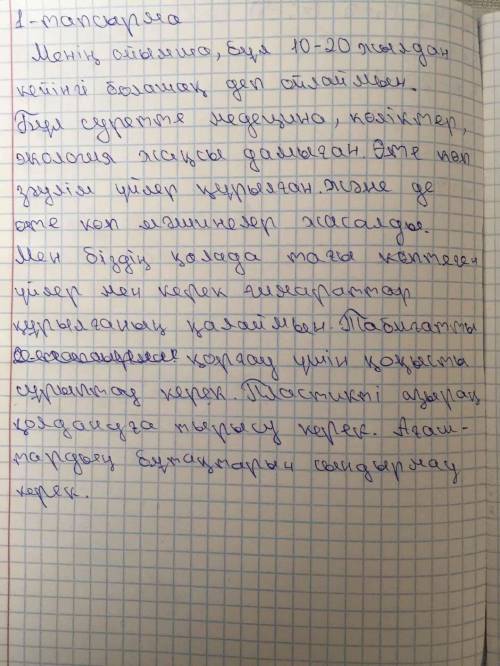 1-тапсырма
Менің ойымша, бұл 10-20 жылдан
кейінгі болашақ деп ойлаймын.
Бұл суретте медецина, көліктер,
экология жақсы дамыған. Өте көп
зәулім үйлер құрылған. және де
өте көп мәшинелер жасалды.
Мен біздің қалада тағы көптеген
үйлер мен керек ғимараттар
құрылғаның қалаймын. Табиғатты
қорғау үшін қоқыста
сұрыптау керек. Пластикті азырақ
қолдануға тырысу керек. Ағаш-
тардың бұтақтарын сындырмау
керек.